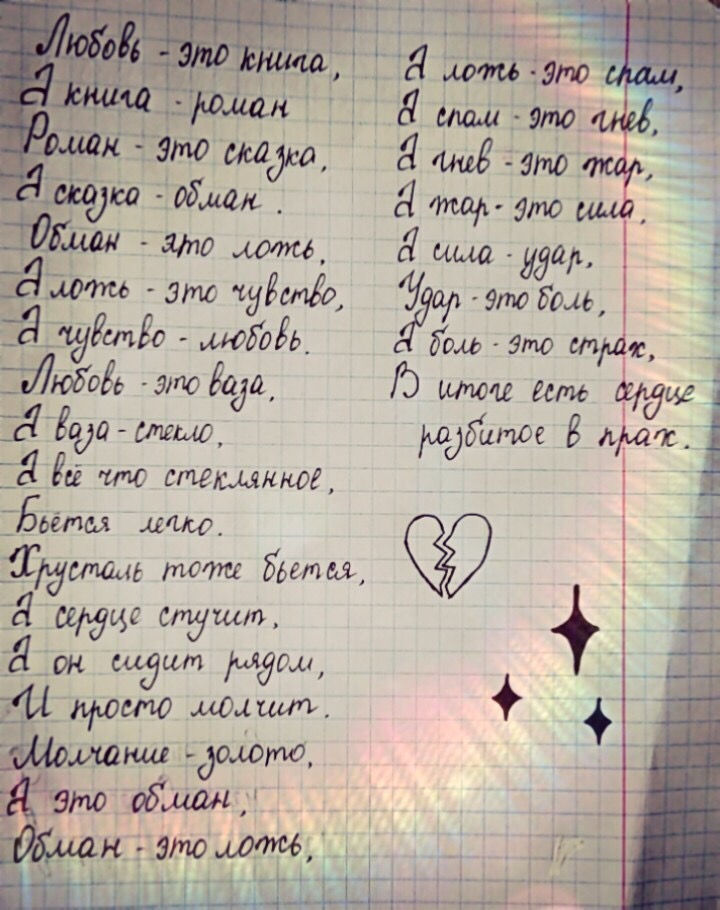 Любовь - это книга,
А книга - роман
Роман - это сказка,
А сказка - обман.
Обман - это ложь,
А ложь - это чувство,
А чувство - любовь.
Любовь - это ваза,
А ваза - стекло,
А всё что стеклянное,
Бьётся легко.
Хрусталь тоже бьется,
А сердце стучит,
А он сидит рядом,
И просто молчит.
Молчание - золото,
А это обман,
Обман - это ложь,
А ложь - это спам,
А спам - это гнев,
А гнев - это жар,
А жар - это сила,
А сила - удар,
Удар - это боль,
А боль - это страх,
В итоге есть сердце
разбитое в прах.